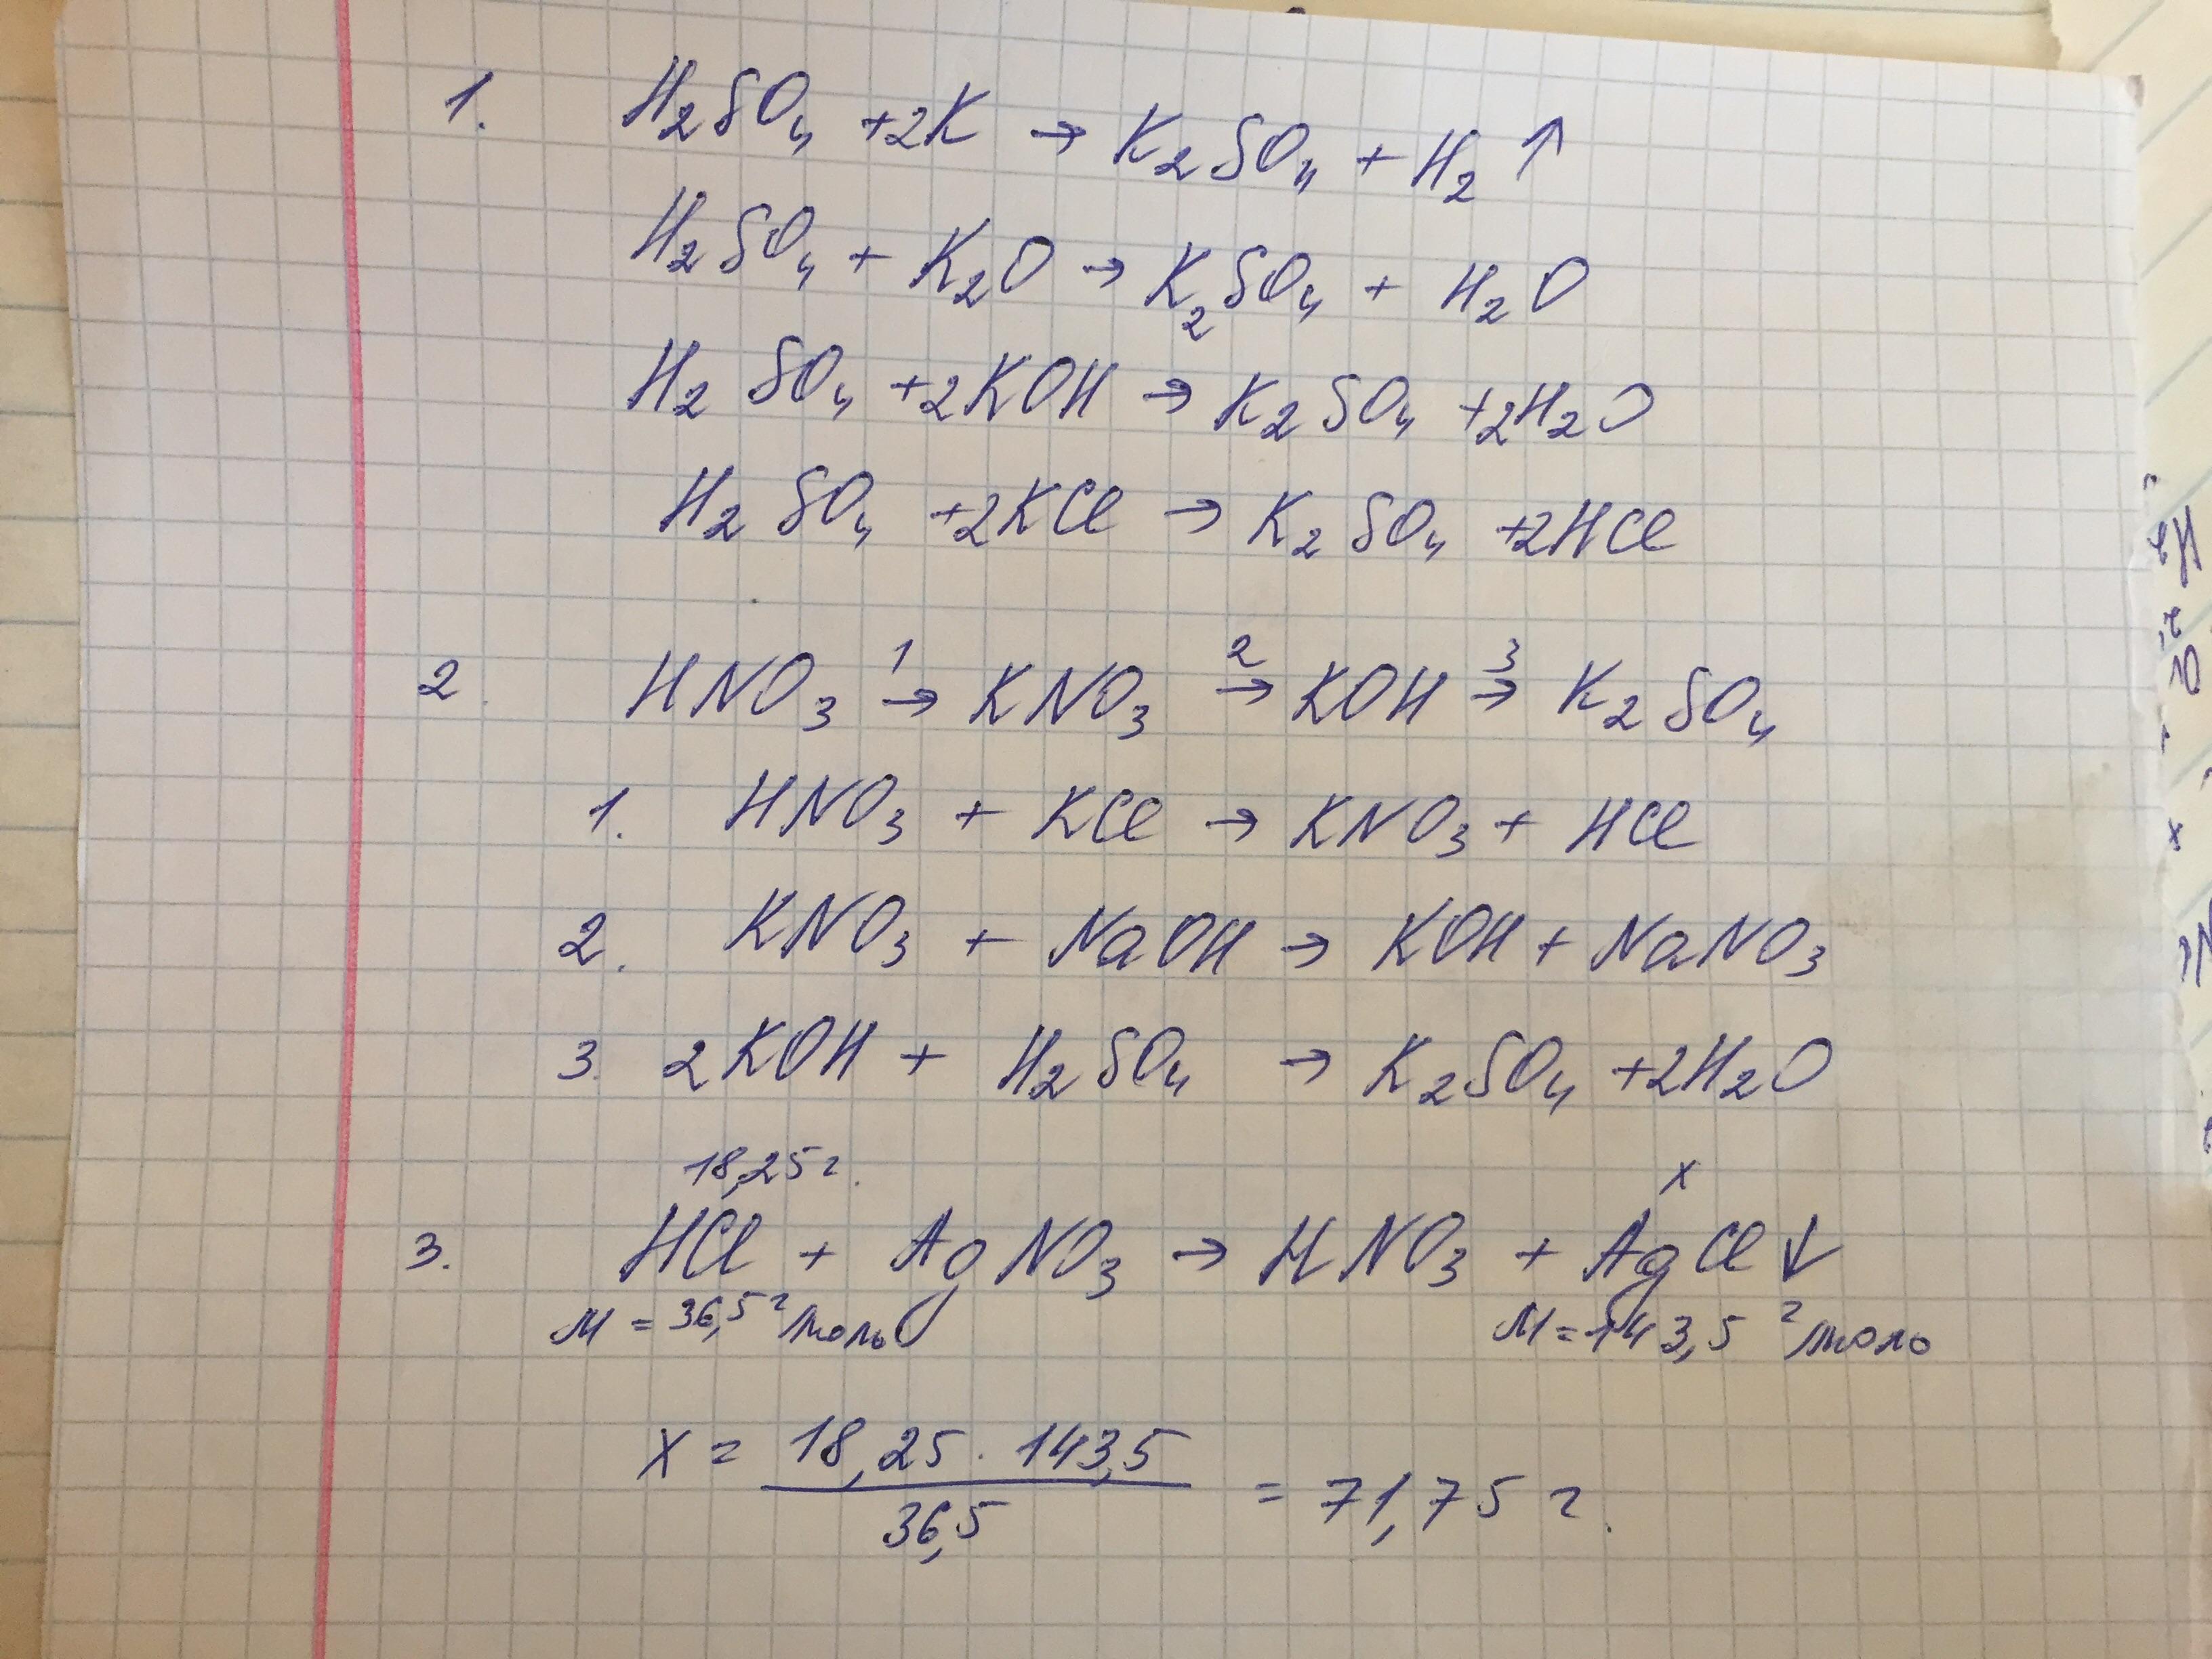 1. H₂SO₄ +2K → K₂SO₄ + H₂ ↑
H₂SO₄ + K₂O → K₂SO₄ + H₂O
H₂SO₄ +2KOH → K₂SO₄ +2H₂O
H₂SO₄ +2KCl → K₂SO₄ +2HCl
2. HNO₃ →¹ KNO₃ →² KOH →³ K₂SO₄
1. HNO₃ + KCl → KNO₃ + HCl
2. KNO₃ + NaOH → KOH + NaNO₃
3. 2KOH + H₂SO₄ → K₂SO₄ +2H₂O
18,25 г. x
3. HCl + AgNO₃ → HNO₃ + AgCl ↓
M = 36,5 г/моль M = 143,5 г/моль
x = 18,25 · 143,5 / 36,5 = 71,75 г.